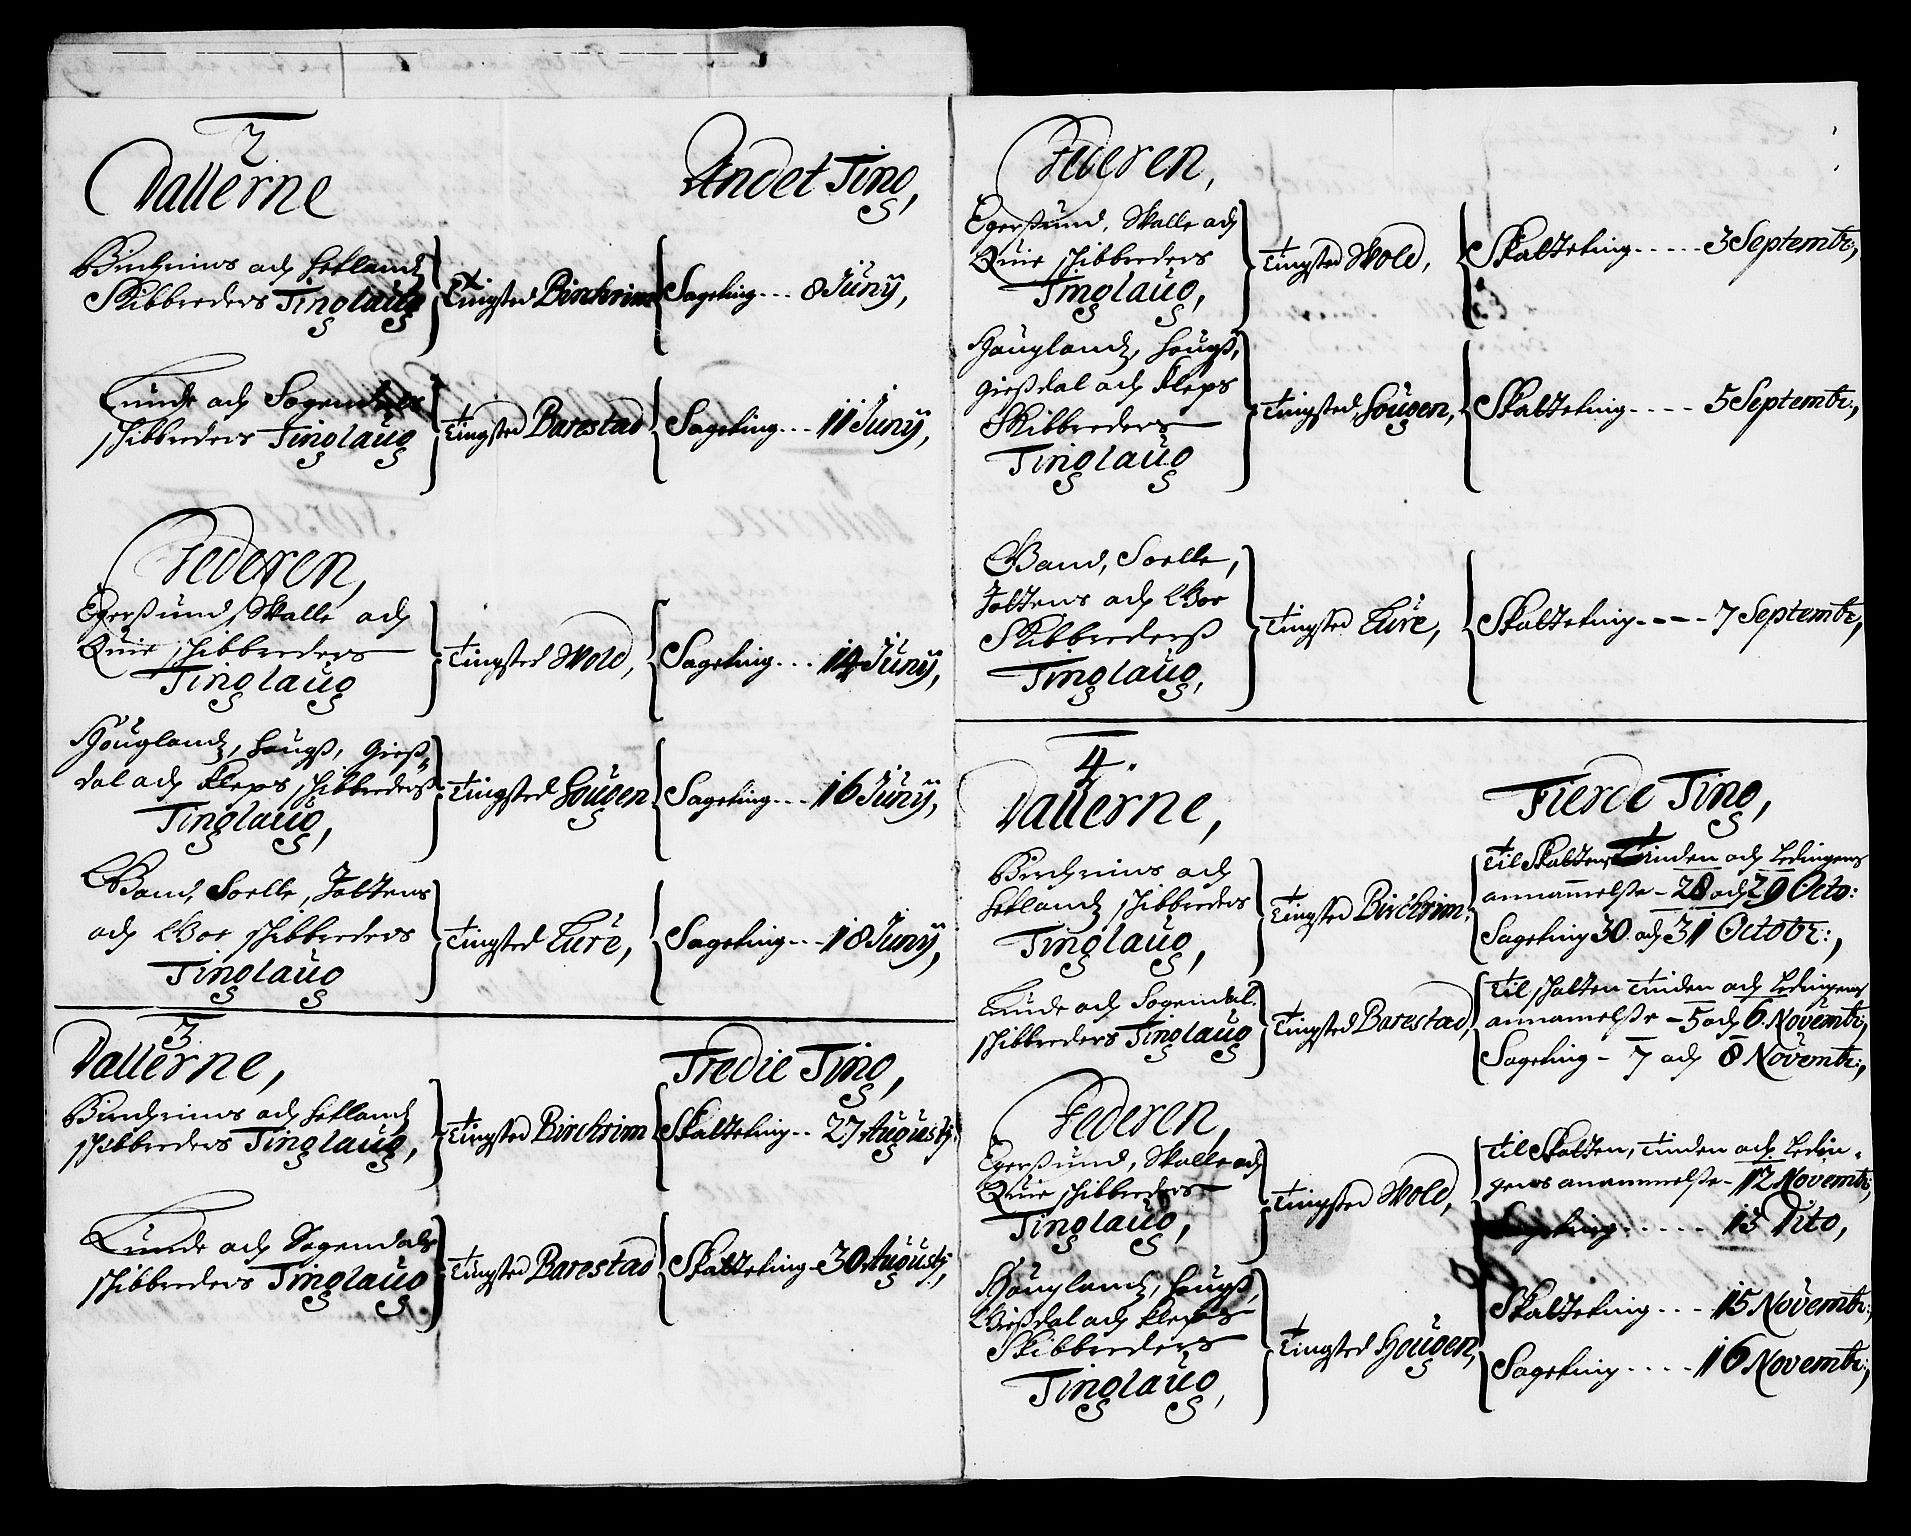 2
Dallerne
Andet Ting,
Birchrims och Hetlandz
Skibbreders Tinglaug
Tingsted Birchrim
Sageting... 8 Juny,
Lunde och Sogendals
schibbreders Tinglaug
Tingsted Barestad
Sageting... 11 Juny,
Jederen,
Egersund, Skalle och
Quie schibbreders
Tinglaug
Tingsted Wold,
Sageting... 14 Juny,
Høuglandz, Haugs, Gies-
dal och Kleps schibbreders
Tinglaug,
Tingsted Hougen
Sageting... 16 Juny,
Soelle, Joltens
och Boe schibbreders
Tinglaug
Tingsted Lure,
Sageting... 18 Juny,
3.
Dallerne,
Tredie Ting,
Birchrims och Hetlandz
schibbreders Tinglaug,
Tingsted Birchrim
Skatteting.. 27 Augusty
Lunde och Sogendals
schibbreders Tinglaug
Tingsted Barestad
Skatteting - 30 Augusty,
Jederen,
Egersund, Skalle och
Quie schibbreders
Tinglaug,
Tingsted Wold,
Skatteting..... 3 Septembr:,
Høuglandz, Haugs,
giesdal och Kleps
Skibbreders
Tinglaug
Tingsted Hougen,
Skatteting.... 5 Septembr:,
Soelle,
Joltens och Boe
Skibbreders
Tinglaug,
Tingsted Lure,
Skatteting.... 7 Septembr,
4.
Dallerne,
Fierde Ting,
Birchrims och
Hetlandz schibbreders
Tinglaug,
Tingsted Birchrim,
til Skatten Tinden och Ledingens
annammelsse - 28 och 29 Octo:
Sageting 30. och 31 Octobr:,
Lunde och Sogendal.
schibbreders Tinglaug
Tingsted Barestad,
til schatten tinden och Ledingens
annamelsse - 5 och 6. Novembr;
Sageting - 7 och 8 Novembr:,
Jederen,
Egersund, Skalle och
Quie schibbreders
Tinglaug,
Tingsted Wold,
til Skatten, tinden och Ledin-
gens anammelsse - 12 Novembr;
Sageting..... 13 Dito,
Høuglandz, Haugs,
Giesdal och Kleps
Skibbreders
Tinglaug,
Tingsted Hougen,
Skatteting... 15 Novembr:,
Sageting.... 16 Novembr:,